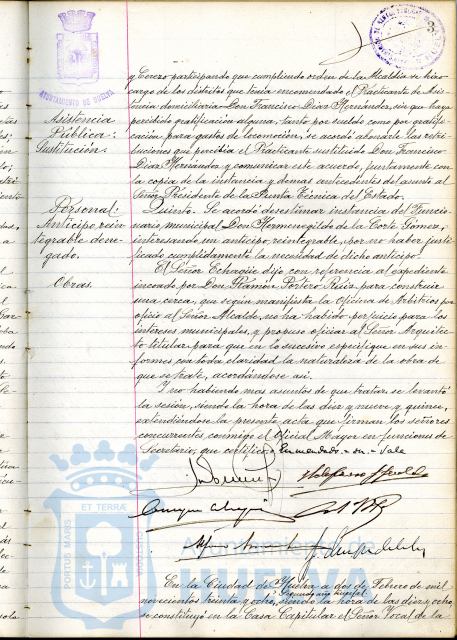 AYUNTAMIENTO DE HUELVA
y Cerero participando que cumpliendo orden de la Alcaldía se hizo
cargo de los distritos que tenía encomendado el Practicante de Asis-
tencia domiciliaria Don Francisco Díaz Hernández, sin que haya
percibido gratificación alguna, tanto por sueldo como por gratifi-
cación para gastos de locomoción, se acordó abonarle las retri-
buciones que percibía el Practicante sustituido Don Francisco
Díaz Hernández y comunicar este acuerdo, juntamente con
la copia de la instancia y demás antecedentes del asunto al
Señor Presidente de la Junta Técnica del Estado.
Asistencia
Pública:
Sustitución.
Quinto. Se acordó desestimar instancia del Funcio-
nario municipal Don Hermenegildo de la Corte Gómez,
interesando un anticipo reintegrable, por no haber justi-
ficado cumplidamente la necesidad de dicho anticipo.
Personal:
Anticipo rein-
tegrable dene-
gado.
El Señor Echagüe dijo con referencia al expediente
incoado por Don Ramón Portero Ruiz para construir
una cerca, que según manifiesta la Oficina de Arbitrios por
oficio al Señor Alcalde, no ha habido perjuicio para los
intereses municipales, y propuso oficiar al Señor Arquitec-
to titular para que en lo sucesivo especifique en sus in-
formes con toda claridad la naturaleza de la obra de
que se trate, acordándose así.
Obras.
Y no habiendo mas asuntos de que tratar, se levantó
la sesión, siendo la hora de las diez y nueve y quince,
extendiéndose la presente acta que firman los señores
concurrentes, conmigo el Oficial Mayor en funciones de
Secretario, que certifico. Enmendado = su = Vale
En la Ciudad de Huelva a dos de Febrero de mil
novecientos treinta y ocho, Segundo año triunfal, siendo la hora de las diez y ocho,
se constituyó en la Casa Capitular el Señor Vocal de la
ET TERRAE
PORTUS MARIS
Ayuntamiento de
HUELVA